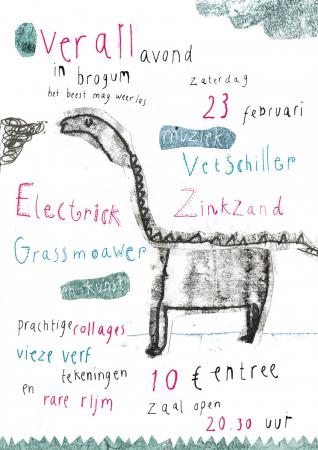 Overall avond
in brogum
het beest mag weer los
zaterdag
23 februari
muziek
Vetschiller
Electrick Zinkzand
Grassmoawer
en kunst
prachtige collages
vieze verf
tekeningen
en rare rijm
10 € entree
zaal open
20.30 uur